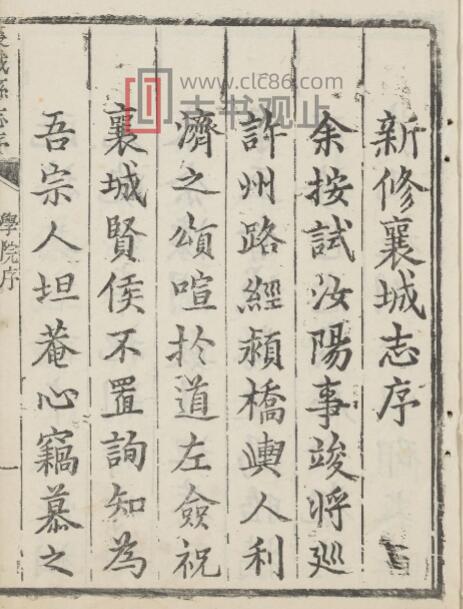 新修襄城志序
余按試汝陽事竣將廵
許州路經潁橋輿人利
濟之頌喧於道左僉祝
襄城賢侯不置詢知為
吾宗人坦菴心竊慕之
襄城縣志序
學院序
一
www.clc86.com
古书观止